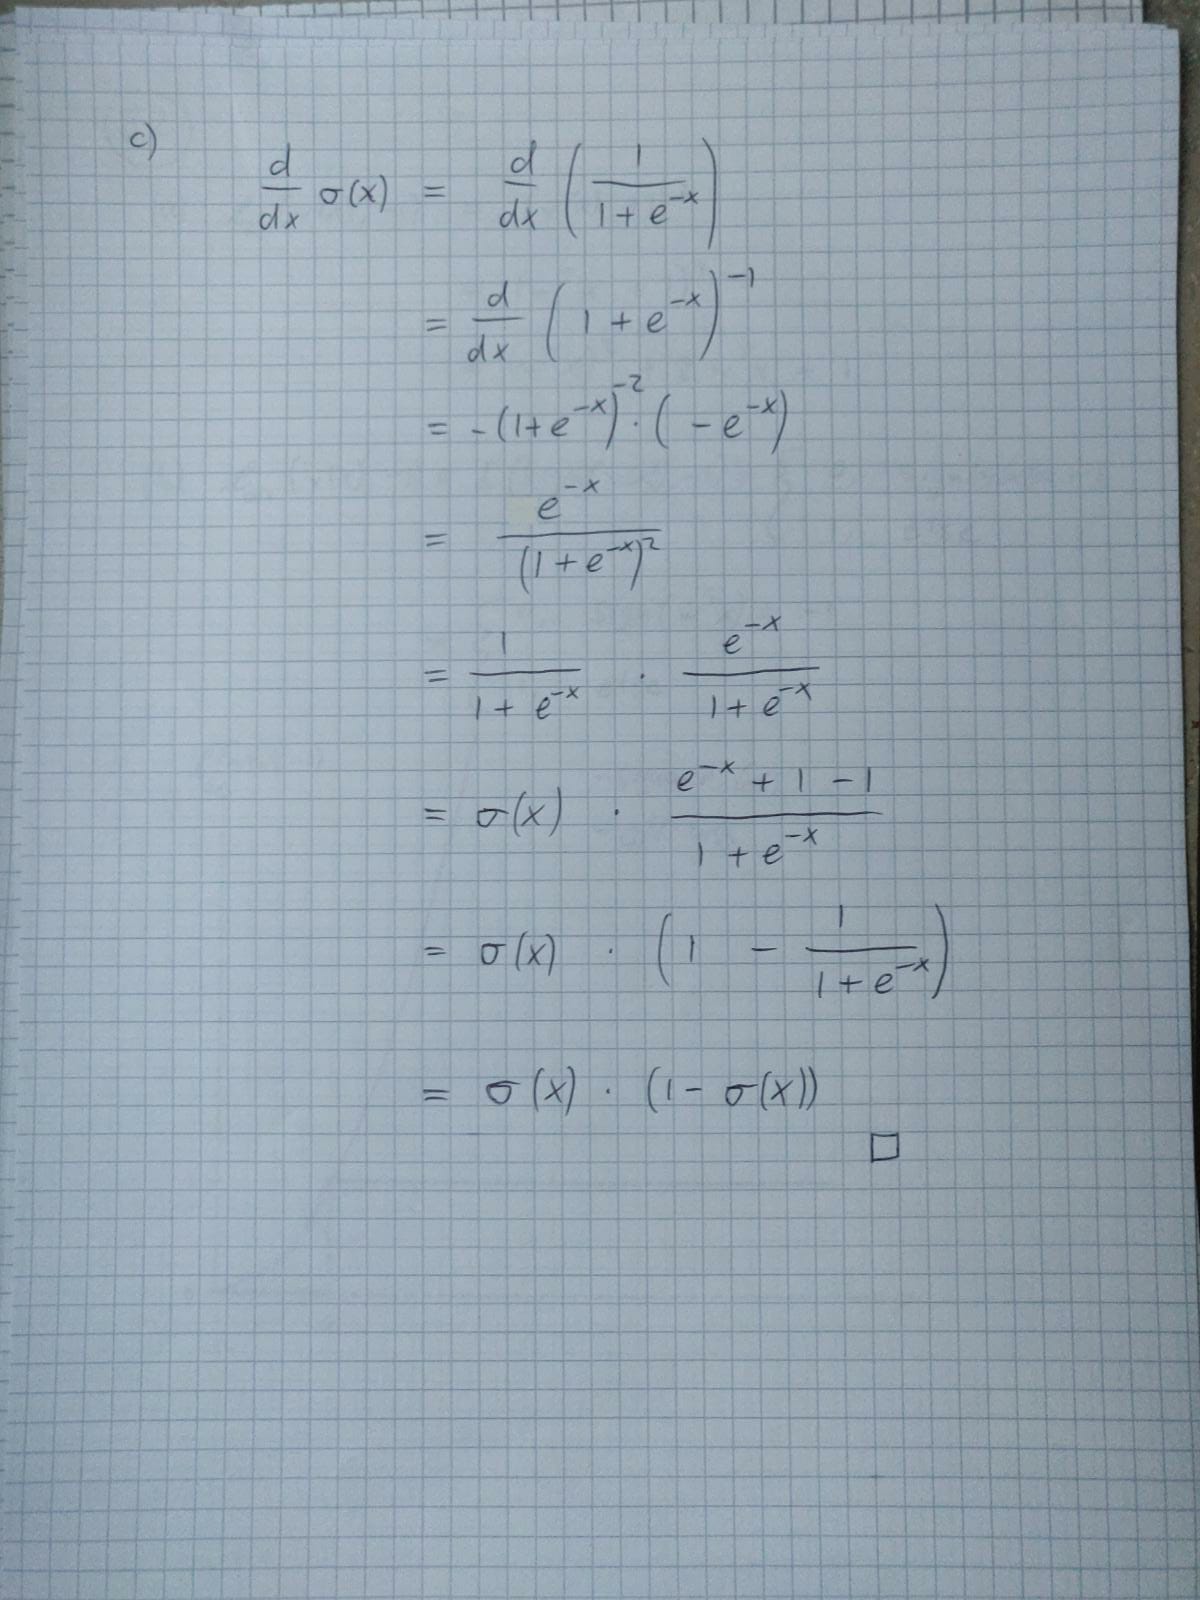 c)
d/dx σ(x) = d/dx (1/(1 + e^{-x}))
= d/dx (1 + e^{-x})^{-1}
= -(1+e^{-x})^{-2} · (-e^{-x})
= e^{-x}/(1 + e^{-x})^2
= 1/(1 + e^{-x}) · e^{-x}/(1 + e^{-x})
= σ(x) · (e^{-x} + 1 - 1)/(1 + e^{-x})
= σ(x) · (1 - 1/(1 + e^{-x}))
= σ(x) · (1 - σ(x))
□